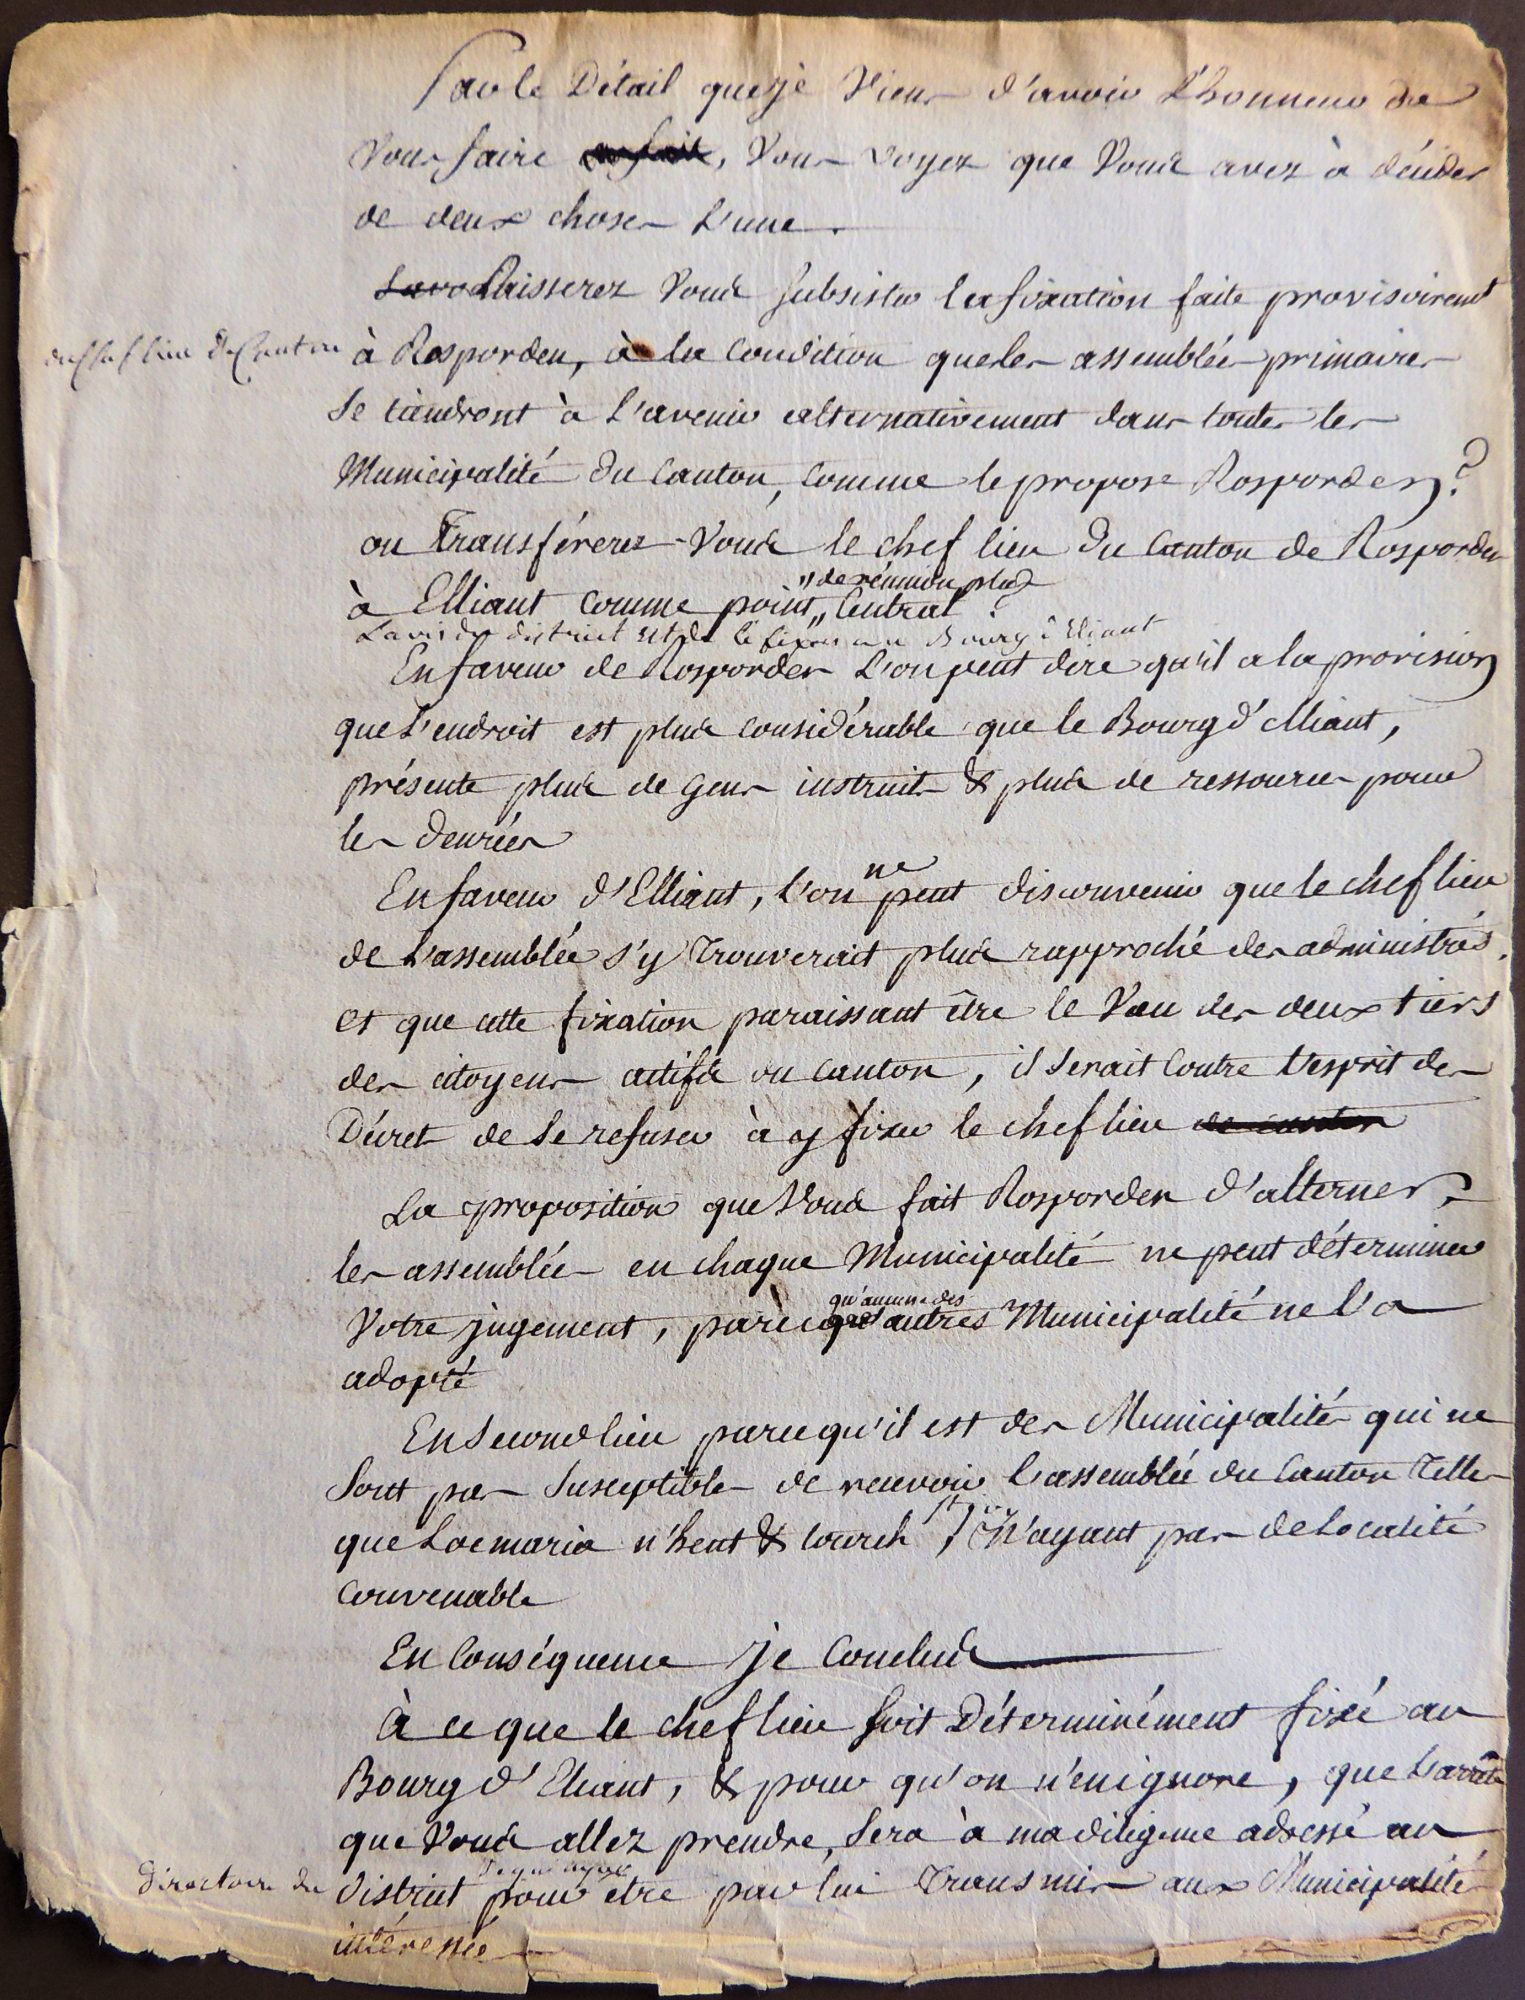 Par le Détail que je Viens d'avoir L'honneur de
Vous faire, Vous voyez que Vous avez à décider
de deux choses L'une.
Laisserez Vous subsister la fixation faite provisoirement
du chef lieu de Canton à Rosporden, à la Condition que les assemblées primaires
se tiendront à L'avenir alternativement dans toutes les
Municipalités du Canton, comme le propose Rosporden?
ou Transférerez-Vous le chef lieu du Canton de Rosporden
à Elliant comme point "de réunion plus" Central?
L'avis du district est de le fixer au Bourg d'Eliant
En faveur de Rosporden L'on peut dire qu'il a la provision
que L'endroit est plus considérable que le Bourg d'elliant,
présente plus de gens instruits & plus de ressources pour
les denrées
En faveur d'Elliant, L'on ne peut disconvenir que le chef lieu
de L'assemblée s'y Trouverait plus rapproché des administrés,
et que cette fixation paraissant être le Vœu des deux tiers
des citoyens actifs du Canton, il serait Contre L'esprit des
Décrets de se refuser à y fixer le chef lieu de canton
La proposition que Vous fait Rosporden d'alterner,
les assemblées en chaque Municipalité ne peut déterminer
Votre jugement, parce qu'aucune des autres Municipalités ne l'a
adopté
En second lieu parce qu'il est des Municipalités qui ne
sont pas susceptibles de recevoir L'assemblée du Canton Telles
que Locmaria n'hent & tourch, N'ayant pas de Localité
Convenable
En Conséquence je Conclus
À ce que le chef lieu soit Déterminément fixé au
Bourg d'Eliant, & pour qu'on n'en ignore, que L'arrêté
que Vous allez prendre, sera à ma diligence adressé au
Directoire du District pour être par lui Transmis aux Municipalités
intéressées